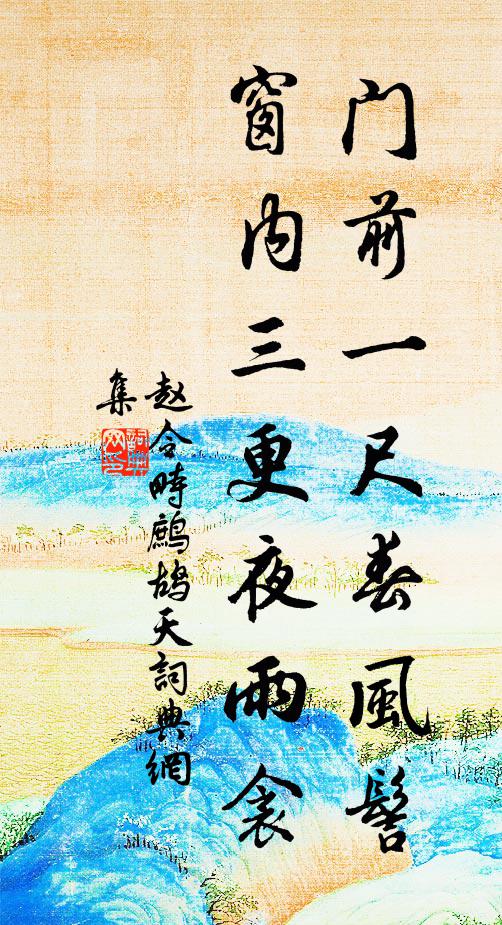 门前一尺春风髻
窗内三更夜雨衾
赵令畤鹧鸪天詞典網
集